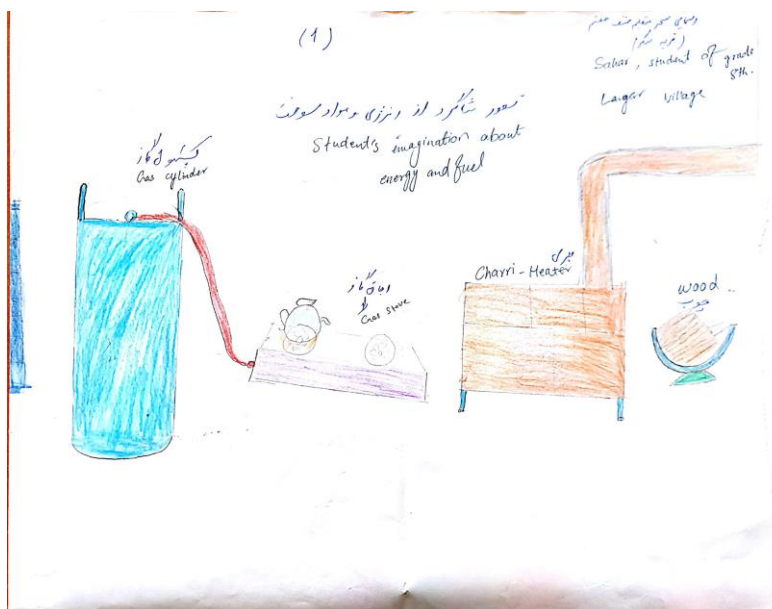 (1)
Sahar, student of grade
8th.
Langar village
تصور شاگرد از انرژی و مواد سوخت
Student's imagination about
energy and fuel
گاز
Gas cylinder
گاز
Gas stove
Charri-Heater
wood
چوب